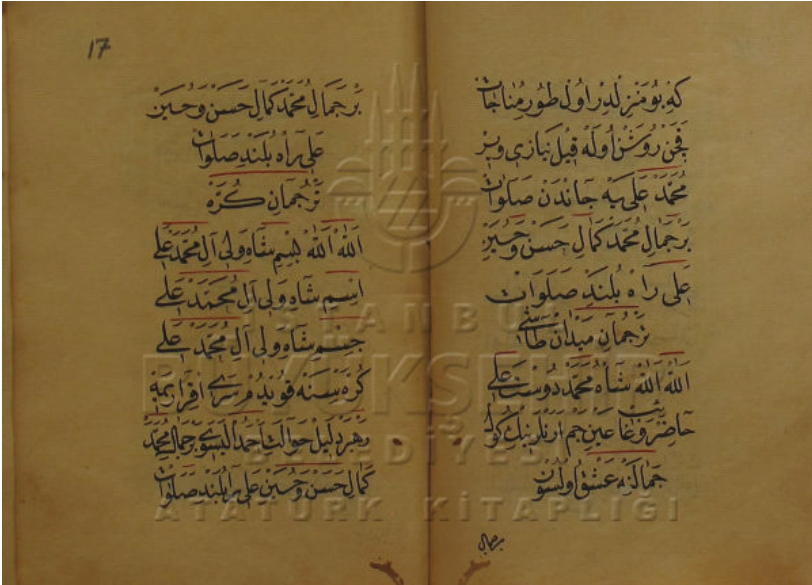 که بو منزلدر اول طور مناجات
قچن روشن اوله قیل نیازی ویر
محمد علی یه جاندن صلوات
بر جمال محمد کمال حسن و حسین
علی راه بلند صلوات
ترجمان میدان طاشی
الله الله شاه محمد دوست علی
حاضر و غائب عین جم ارنلرینك کول
جمالنه عشق اولسون
بر جمال
17
بر جمال محمد کمال حسن و حسین
علی راه بلند صلوات
ترجمان کره
الله الله بسم شاه ولی آل محمد علی
اسم شاه ولی آل محمد علی
جسم شاه ولی آل محمد علی
کره سنه قویدم سری اقراریمه
رهبر دلیل حوالت احمد الیسوی بر جمال محمد
کمال حسن و حسین علی را بلند صلوات
İSTANBUL
BÜYÜKŞEHİR
BELEDİYESİ
ATATÜRK KİTAPLIĞI